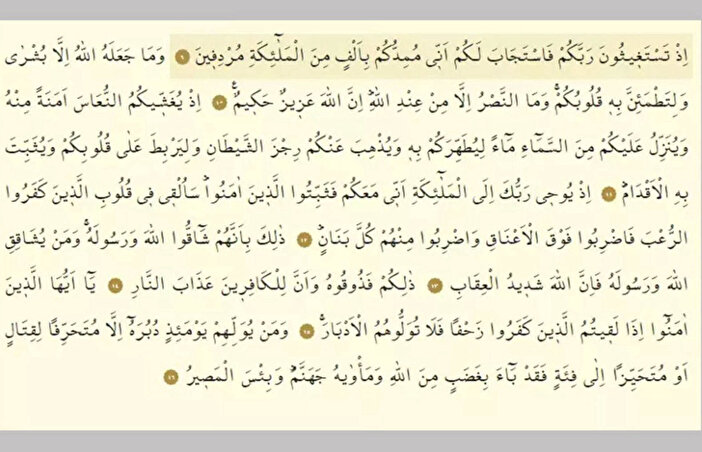 اِذْ تَسْتَغٖيثُونَ رَبَّكُمْ فَاسْتَجَابَ لَكُمْ اَنّٖي مُمِدُّكُمْ بِاَلْفٍ مِنَ الْمَلٰٓئِكَةِ مُرْدِفٖينَ ٩ وَمَا جَعَلَهُ اللّٰهُ اِلَّا بُشْرٰى
وَلِتَطْمَئِنَّ بِهٖ قُلُوبُكُمْۚ وَمَا النَّصْرُ اِلَّا مِنْ عِنْدِ اللّٰهِؕ اِنَّ اللّٰهَ عَزٖيزٌ حَكٖيمٌࣖ ١٠ اِذْ يُغَشّٖيكُمُ النُّعَاسَ اَمَنَةً مِنْهُ
وَيُنَزِّلُ عَلَيْكُمْ مِنَ السَّمَٓاءِ مَٓاءً لِيُطَهِّرَكُمْ بِهٖ وَيُذْهِبَ عَنْكُمْ رِجْزَ الشَّيْطَانِ وَلِيَرْبِطَ عَلٰى قُلُوبِكُمْ وَيُثَبِّتَ
بِهِ الْاَقْدَامَؕ ١١ اِذْ يُوحٖي رَبُّكَ اِلَى الْمَلٰٓئِكَةِ اَنّٖي مَعَكُمْ فَثَبِّتُوا الَّذٖينَ اٰمَنُواؕ سَاُلْقٖي فٖي قُلُوبِ الَّذٖينَ كَفَرُوا
الرُّعْبَ فَاضْرِبُوا فَوْقَ الْاَعْنَاقِ وَاضْرِبُوا مِنْهُمْ كُلَّ بَنَانٍؕ ١٢ ذٰلِكَ بِاَنَّهُمْ شَٓاقُّوا اللّٰهَ وَرَسُولَهُۚ وَمَنْ يُشَاقِقِ
اللّٰهَ وَرَسُولَهُ فَاِنَّ اللّٰهَ شَدٖيدُ الْعِقَابِ ١٣ ذٰلِكُمْ فَذُوقُوهُ وَاَنَّ لِلْكَافِرٖينَ عَذَابَ النَّارِ ١٤ يَٓا اَيُّهَا الَّذٖينَ
اٰمَنُٓوا اِذَا لَقٖيتُمُ الَّذٖينَ كَفَرُوا زَحْفًا فَلَا تُوَلُّوهُمُ الْاَدْبَارَۚ ١٥ وَمَنْ يُوَلِّهِمْ يَوْمَئِذٍ دُبُرَهُٓ اِلَّا مُتَحَرِّفًا لِقِتَالٍ
اَوْ مُتَحَيِّزًا اِلٰى فِئَةٍ فَقَدْ بَٓاءَ بِغَضَبٍ مِنَ اللّٰهِ وَمَأْوٰيهُ جَهَنَّمُؕ وَبِئْسَ الْمَصٖيرُ ١٦